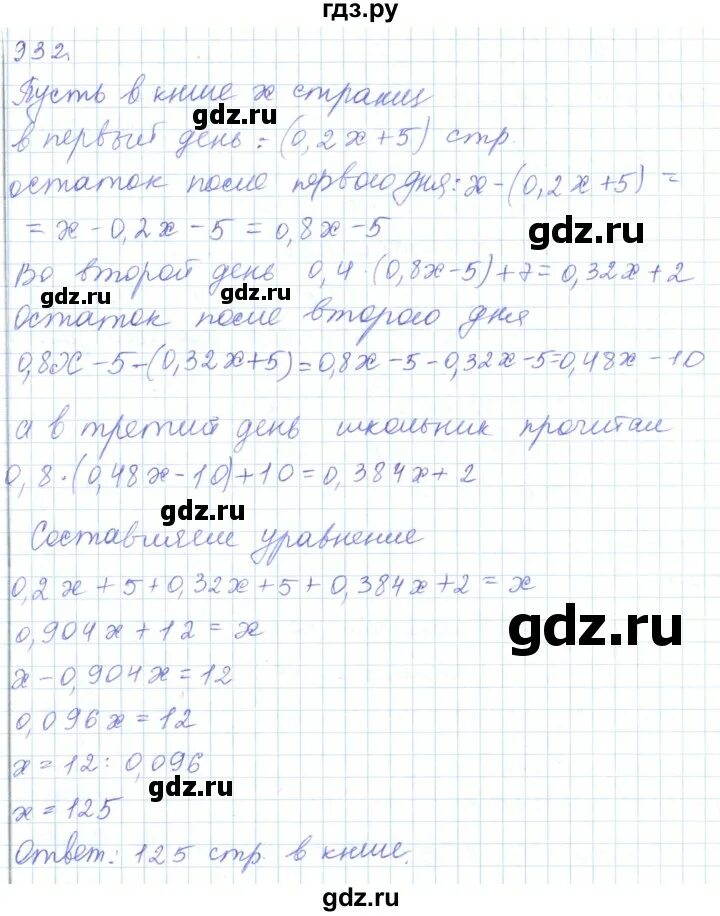 гдз.ру
932.
Пусть в книге x страниц
gdz.ru
в первый день : (0,2x+5) стр.
остаток после первого дня: x-(0,2x+5) =
= x - 0,2x - 5 = 0,8x - 5
gdz.ru
Во второй день 0,4 · (0,8x-5)+7 = 0,32x + 2
gdz.ru gdz.ru
остаток после второго дня
0,8x - 5 - (0,32x+5) = 0,8x - 5 - 0,32x - 5 = 0,48x - 10
а в третий день школьник прочитал
0,8 · (0,48x - 10) + 10 = 0,384x + 2
gdz.ru
Составляем уравнение
0,2x + 5 + 0,32x + 5 + 0,384x + 2 = x
0,904x + 12 = x
gdz.ru
x - 0,904x = 12
0,096x = 12
x = 12 : 0,096
gdz.ru
x = 125
Ответ: 125 стр. в книге.
gdz.ru